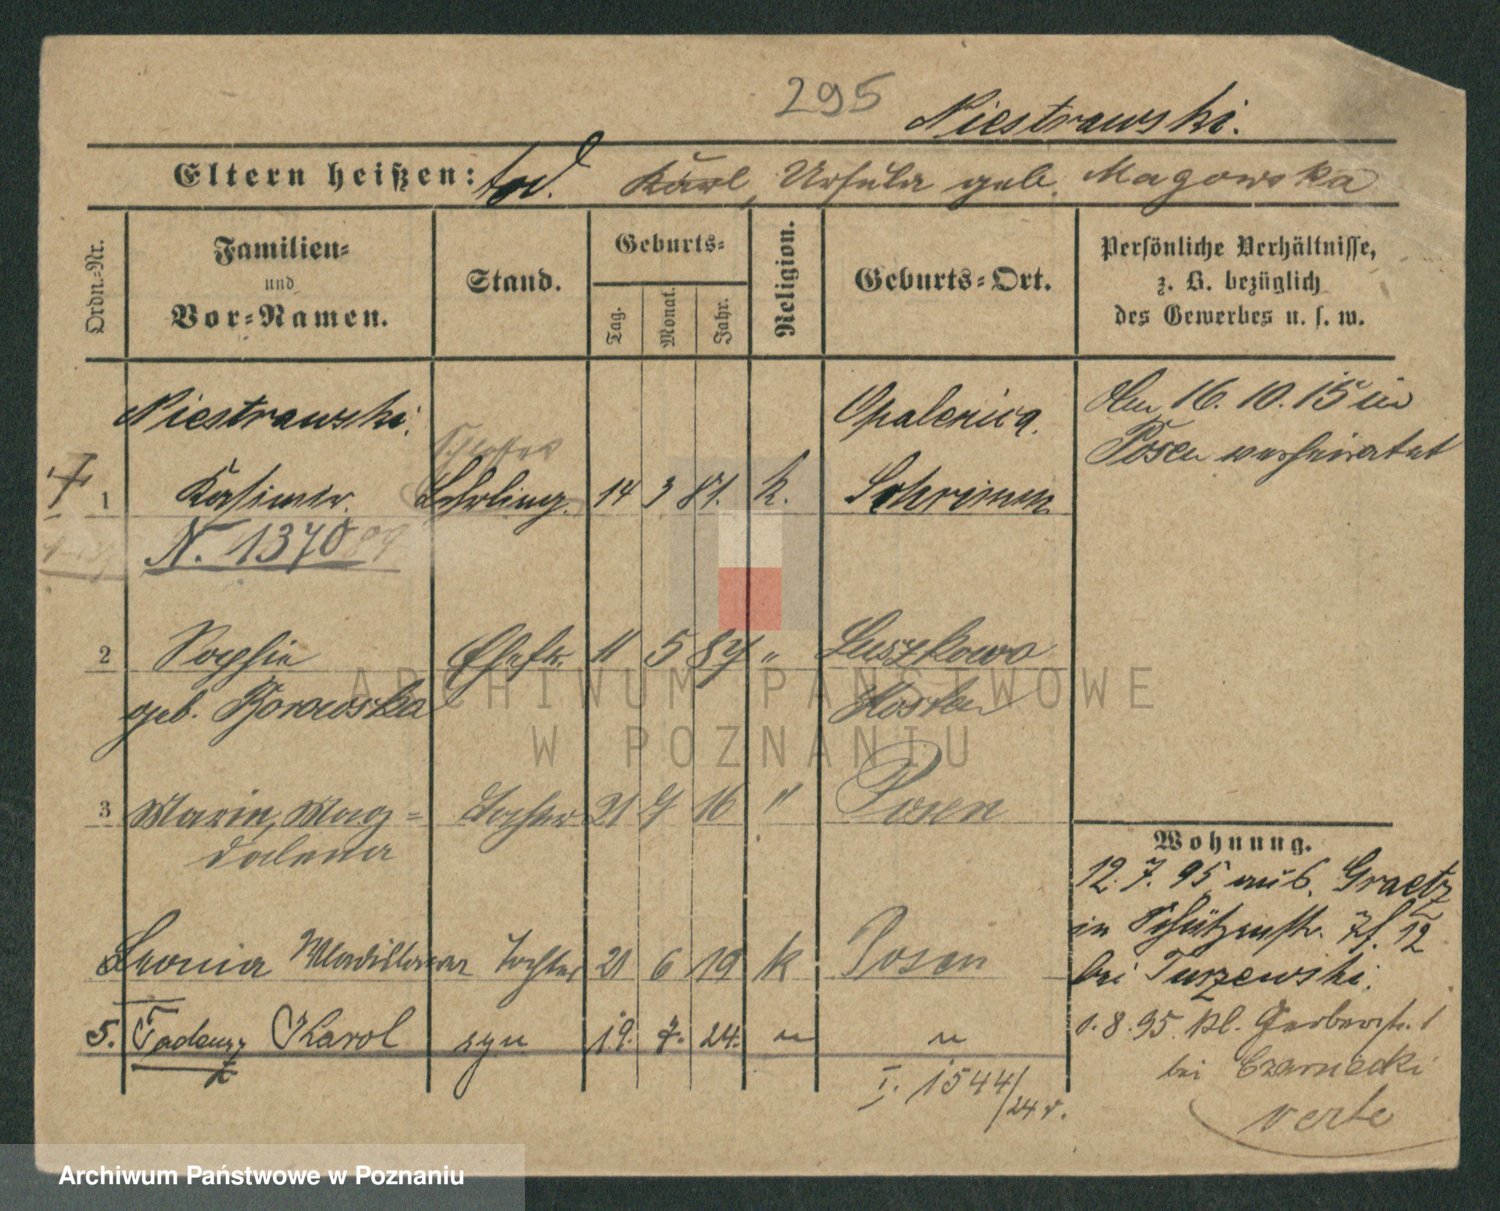 295
Niestrawski.
Eltern heißen: tod. Karl, Ursula geb. Magowska
Ordn.-Nr.
Familien- und Vor-Namen.
Stand.
Geburts-
Tag. Monat. Jahr.
Religion.
Geburts-Ort.
Persönliche Verhältnisse, z. B. bezüglich des Gewerbes u. s. w.
Niestrawski. Opalenica. Am 16. 10. 15 in
Posen verheiratet
1 Kasimir. Lehrling. 14 3 81. k. Schrimm
N. 1370
2 Sophie Ehefr. 11 5 84 " Luszkowo
geb. Borowska Kosten
3 Maria, Mag- Tochter 21 7 16 " Posen
dalena
Wohnung.
12. 7. 95 aus Graetz
in Schützenstr. 7f. 12
bei Turzewski.
Leonia Tochter 21 6 19 k Posen
5. Tadeusz Karol syn 19. 7. 24. " "
1. 8. 95. Kl. Gerberstr. 1
bei Czarnecki
verte
I. 1544/24 v.
ARCHIWUM PAŃSTWOWE
W POZNANIU
Archiwum Państwowe w Poznaniu